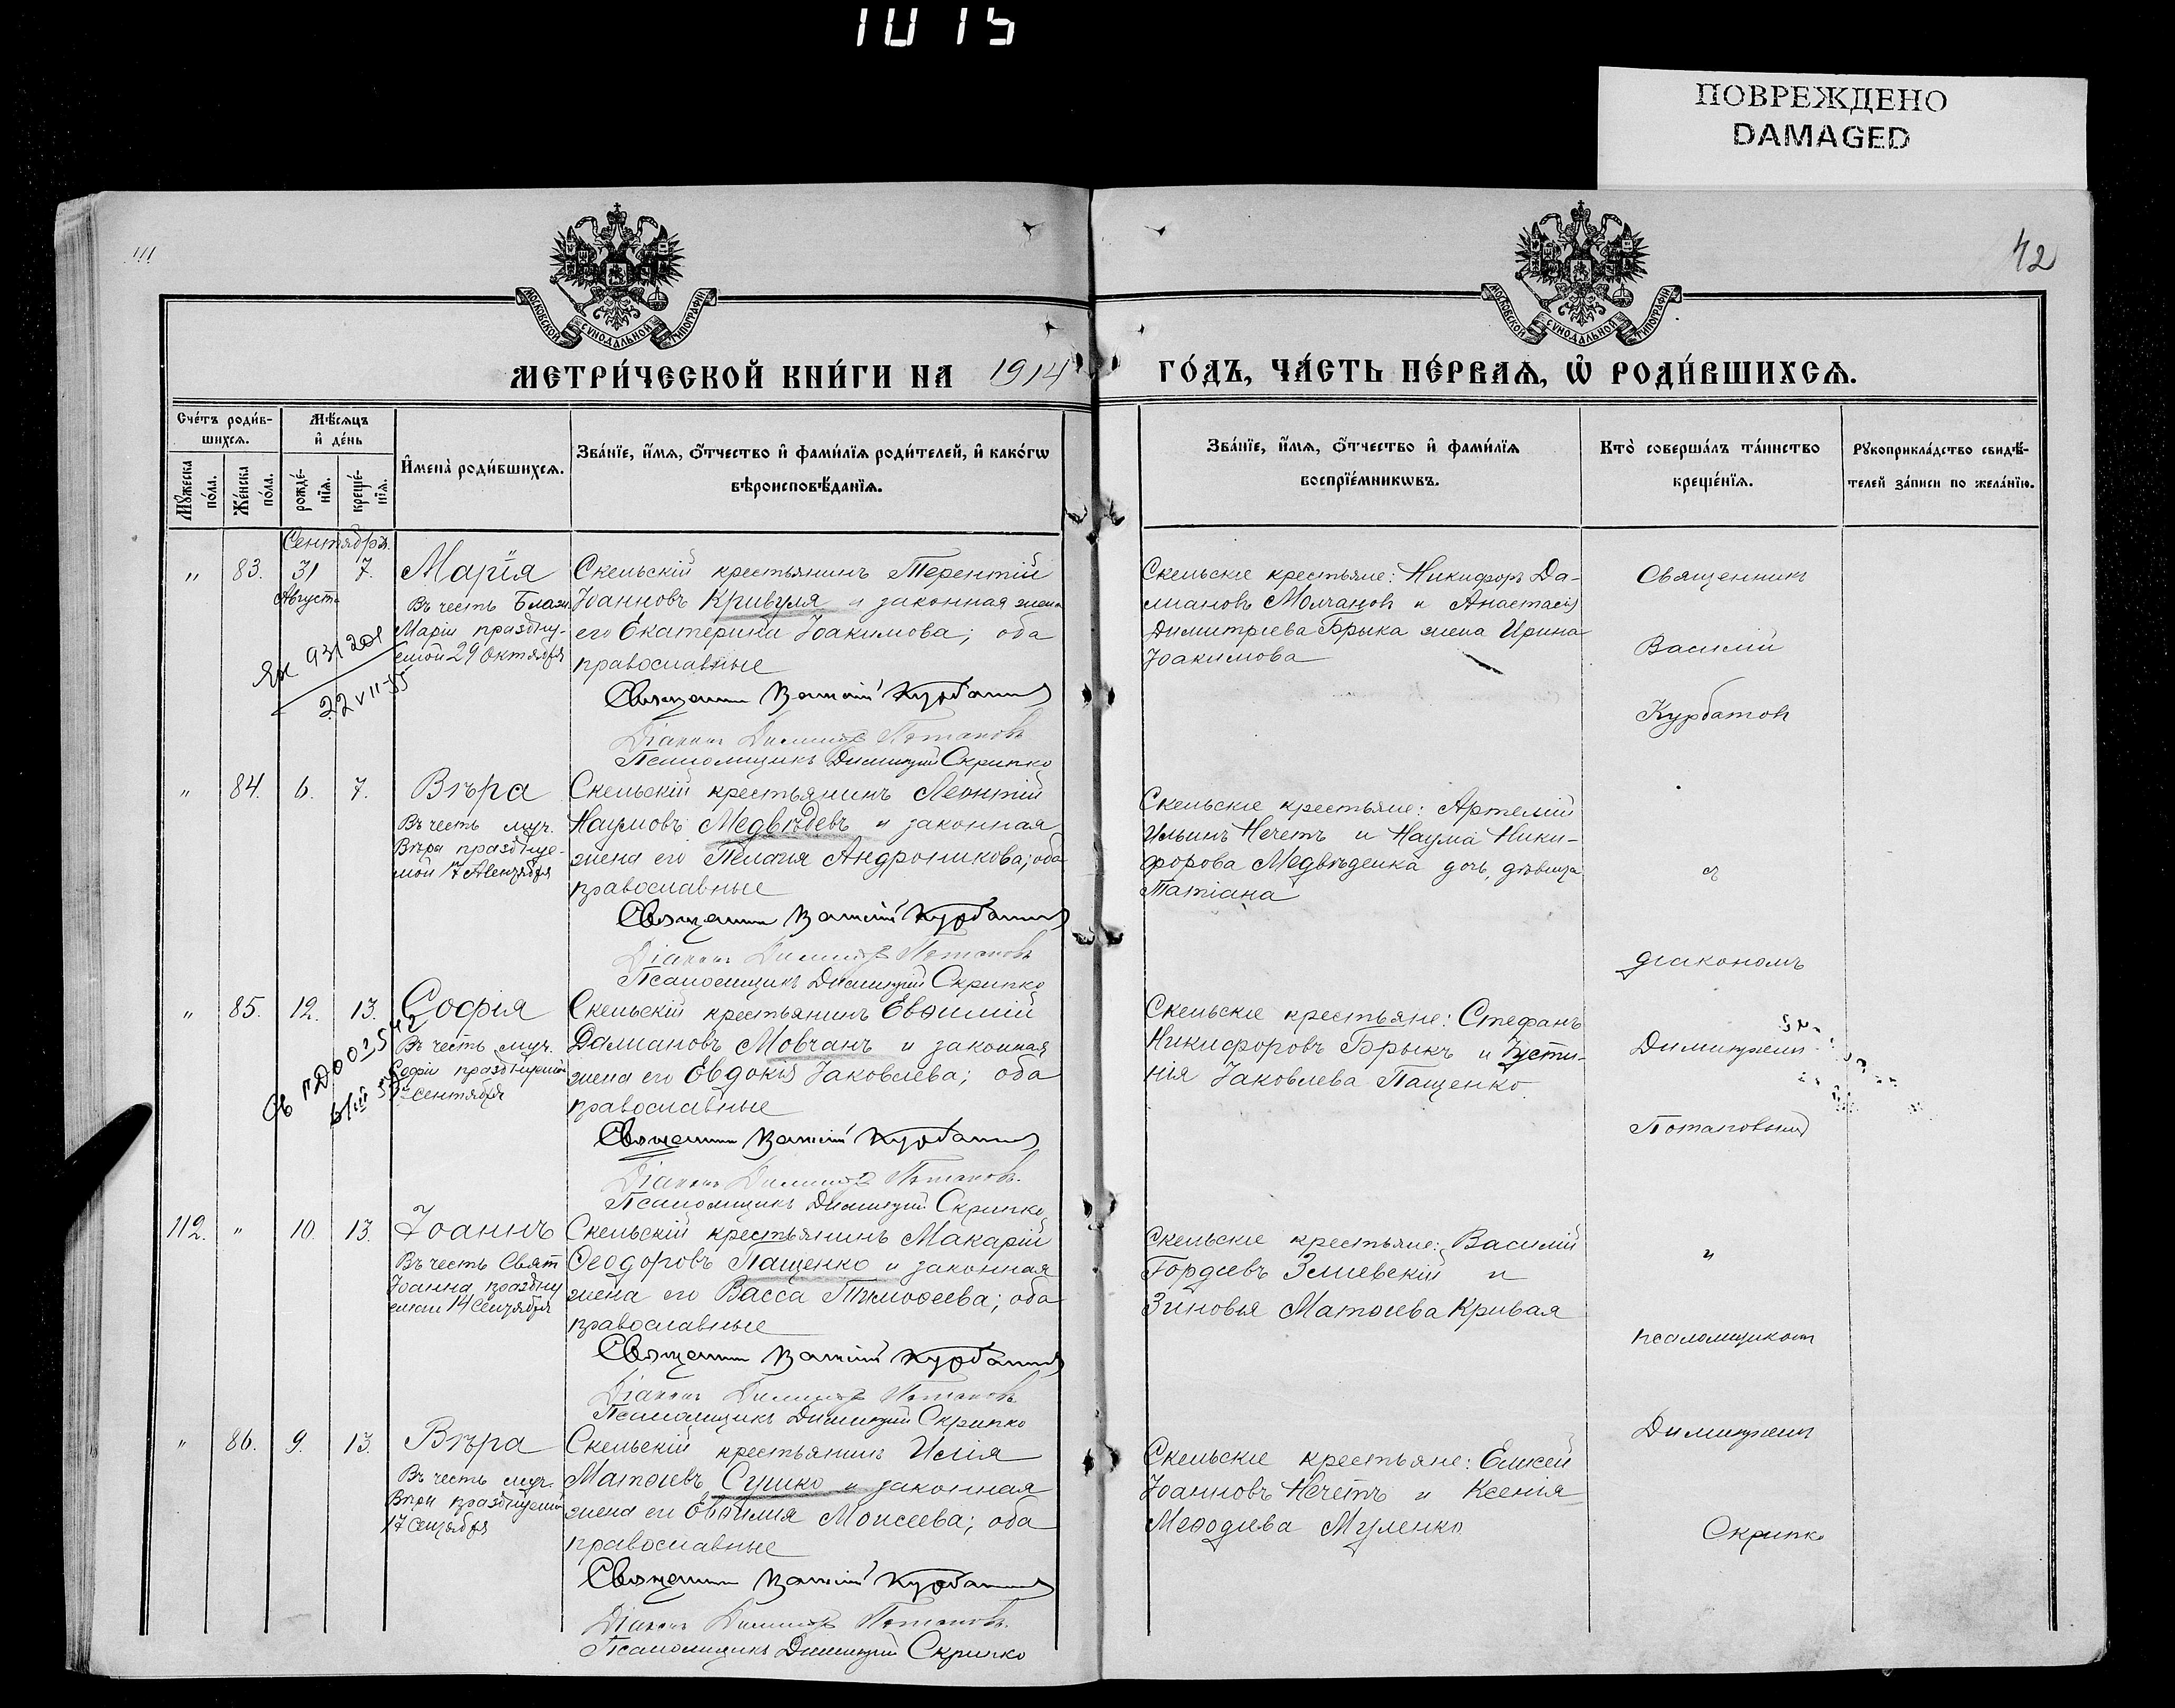 1015
ПОВРЕЖДЕНО
DAMAGED
111
42
МОСКОВСКОЙ СѴНОДАЛЬНОЙ ТИПОГРАФІИ
МОСКОВСКОЙ СѴНОДАЛЬНОЙ ТИПОГРАФІИ
МЕТРИ́ЧЕСКОЙ КНИ́ГИ НА 1914 ГО́ДЪ, ЧА́СТЬ ПЕ́РВАѦ, Ѡ҆ РОДИ́ВШИХСѦ.
Сче́тъ роди́в-
шихсѧ.
Мѣ́сѧцъ
и҆ де́нь
Мꙋ́жеска по́ла.
Же́нска по́ла.
рожде́-
нїѧ.
креще́-
нїѧ.
И҆мена̀ роди́вшихсѧ.
Зва́нїе, и҆́мѧ, ѻ҆́тчество и҆ фами́лїѧ роди́телей, и҆ како́гѡ
вѣроисповѣ́данїѧ.
Зва́нїе, и҆́мѧ, ѻ҆́тчество и҆ фами́лїѧ
воспрїе́мникѡвъ.
Кто̀ соверша́лъ та́инство
креще́нїѧ.
Рꙋкоприкла́дство свидѣ́-
телей за́писи по жела́нїю.
Сентября.
" 83. 31 7. Марія
Августа
Въ честь Блаж.
Маріи праздну-
емой 29 Октября
22 VII-55
Скельскій крестьянинъ Терентій
Іоанновъ Кривуля и законная жена
его Екатерина Іоакимова; оба
православные
Священникъ Василій Курбатовъ
Діаконъ Димитрій Потаповъ
Псаломщикъ Димитрій Скрипко
Скельскіе крестьяне: Никифоръ Да-
миановъ Молчановъ и Анастасія
Димитріева Брыка жена Ирина
Іоакимова
Священникъ
Василій
Курбатовъ
" 84. 6. 7. Вѣра
Въ честь муч.
Вѣры празднуе-
мой 17 Сентября
Скельскій крестьянинъ Леонтій
Наумовъ Медвѣдевъ и законная
жена его Пелагія Андроникова; оба
православные
Священникъ Василій Курбатовъ
Діаконъ Димитрій Потаповъ
Псаломщикъ Димитрій Скрипко
Скельскіе крестьяне: Артемій
Ильинъ Нечетъ и Наума Ники-
форова Медвѣденка дочь, дѣвица
Татіана
съ
діакономъ
" 85. 12. 13. Софія
Въ честь муч.
Софіи празднуемой
17 Сентября
Скельскій крестьянинъ Евѳимій
Даміановъ Мовчанъ и законная
жена его Евдокія Іаковлева; оба
православные
Священникъ Василій Курбатовъ
Діаконъ Димитрій Потаповъ.
Псаломщикъ Димитрій Скрипко
Скельскіе крестьяне: Стефанъ
Никифоровъ Брыкъ и Іусти-
нія Іаковлева Пащенко.
Димитріемъ
Потаповымъ
112. " 10. 13. Іоаннъ
Въ честь Свят.
Іоанна праздну
емаго 14 Сентября
Скельскій крестьянинъ Макарій
Ѳеодоровъ Пащенко и законная
жена его Васса Тимоѳеева; оба
православные
Священникъ Василій Курбатовъ
Діаконъ Димитрій Потаповъ
Псаломщикъ Димитрій Скрипко
Скельскіе крестьяне: Василій
Гордіевъ Змиевскій и
Зиновья Матѳіева Кривая
и
псаломщикомъ
Димитріемъ
" 86. 9. 13. Вѣра
Въ честь муч.
Вѣры празднуемой
17 Сентября
Скельскій крестьянинъ Илія
Матѳіевъ Сушко и законная
жена его Евѳимія Моисеева; оба
православные
Священникъ Василій Курбатовъ
Діаконъ Димитрій Потаповъ.
Псаломщикъ Димитрій Скрипко
Скельскіе крестьяне: Елисей
Іоанновъ Нечетъ и Ксенія
Меѳодіева Муленко
Скрипко